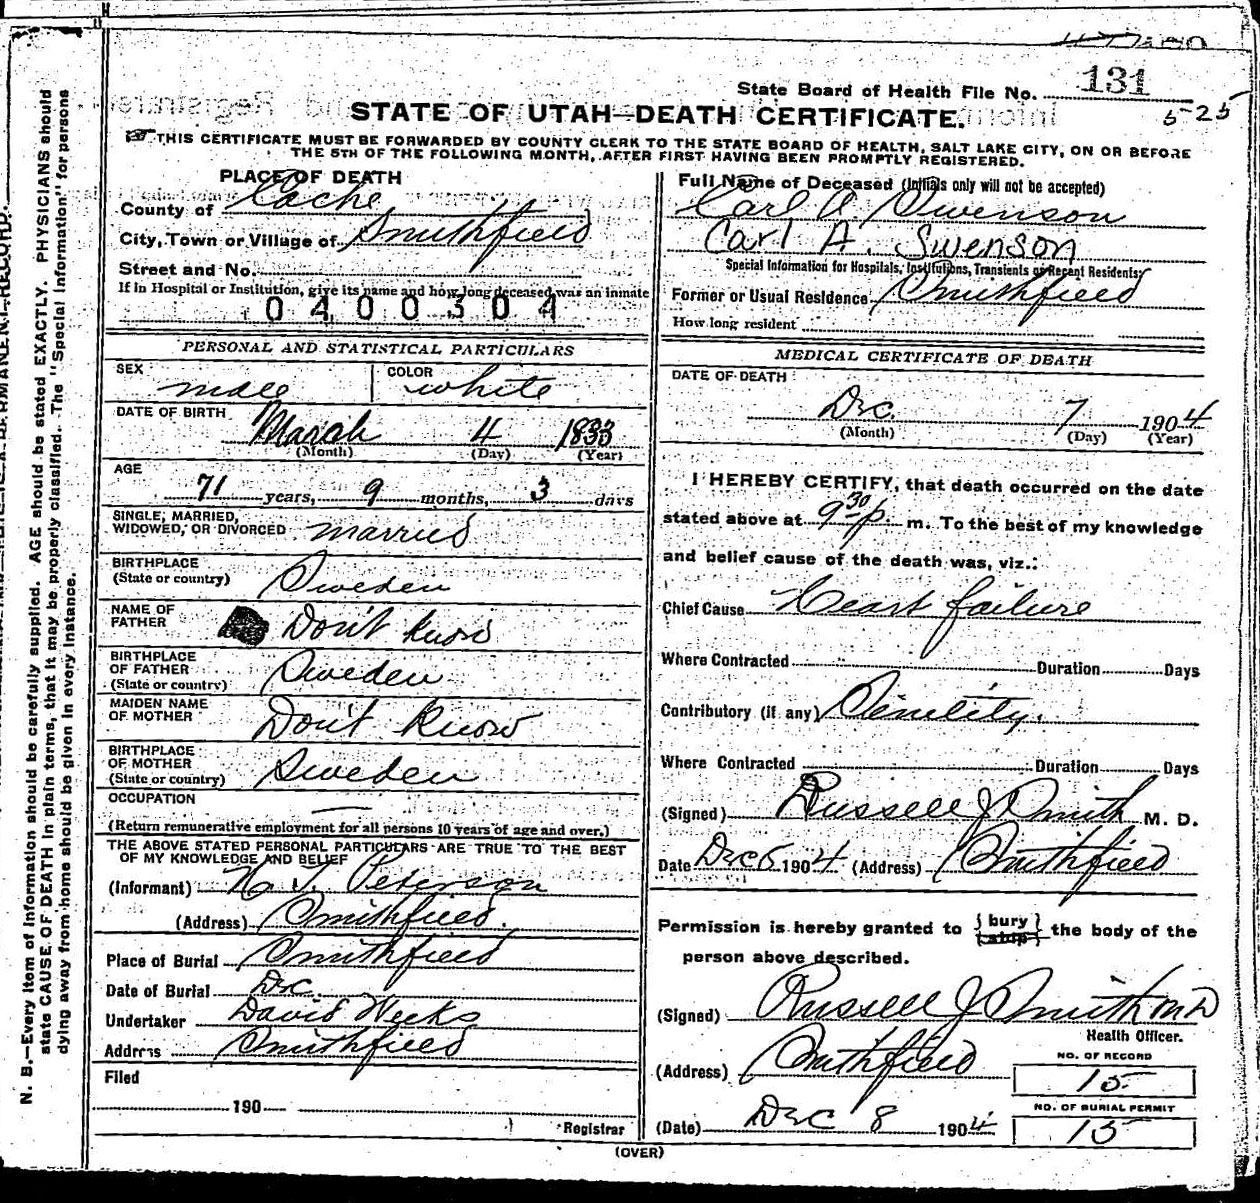 State Board of Health File No. 131
5-25
STATE OF UTAH—DEATH CERTIFICATE.
THIS CERTIFICATE MUST BE FORWARDED BY COUNTY CLERK TO THE STATE BOARD OF HEALTH, SALT LAKE CITY, ON OR BEFORE
THE 5TH OF THE FOLLOWING MONTH, AFTER FIRST HAVING BEEN PROMPTLY REGISTERED.
PLACE OF DEATH
County of Cache
City, Town or Village of Smithfield
Street and No.
If in Hospital or Institution, give its name and how long deceased was an inmate
0400304
PERSONAL AND STATISTICAL PARTICULARS
SEX male COLOR white
DATE OF BIRTH March 4 1833
(Month) (Day) (Year)
AGE 71 years, 9 months, 3 days
SINGLE, MARRIED,
WIDOWED, OR DIVORCED married
BIRTHPLACE
(State or country) Sweden
NAME OF
FATHER Don't know
BIRTHPLACE
OF FATHER
(State or country) Sweden
MAIDEN NAME
OF MOTHER Don't know
BIRTHPLACE
OF MOTHER
(State or country) Sweden
OCCUPATION —
(Return remunerative employment for all persons 10 years of age and over.)
THE ABOVE STATED PERSONAL PARTICULARS ARE TRUE TO THE BEST
OF MY KNOWLEDGE AND BELIEF
(Informant) Peterson
(Address) Smithfield.
Place of Burial Smithfield
Date of Burial Dec.
Undertaker David Weeks
Address Smithfield
Filed
190
Registrar
Full Name of Deceased (Initials only will not be accepted)
Carl A Swenson
Carl A. Swenson
Special Information for Hospitals, Institutions, Transients or Recent Residents:
Former or Usual Residence Smithfield
How long resident
MEDICAL CERTIFICATE OF DEATH
DATE OF DEATH
Dec. 7 1904
(Month) (Day) (Year)
I HEREBY CERTIFY, that death occurred on the date
stated above at 9 30 p. m. To the best of my knowledge
and belief cause of the death was, viz.:
Chief Cause Heart failure
Where Contracted Duration Days
Contributory (if any) Senility.
Where Contracted Duration Days
(Signed) Russell J Smith M. D.
Date Dec 1904 (Address) Smithfield
Permission is hereby granted to {bury ship} the body of the
person above described.
(Signed) Russell J Smith M D
Health Officer.
(Address) Smithfield
NO. OF RECORD
15
NO. OF BURIAL PERMIT
15
(Date) Dec 8 1904
(OVER)
N. B.—Every item of information should be carefully supplied. AGE should be stated EXACTLY. PHYSICIANS should
state CAUSE OF DEATH in plain terms, that it may be properly classified. The "Special Information" for persons
dying away from home should be given in every instance.